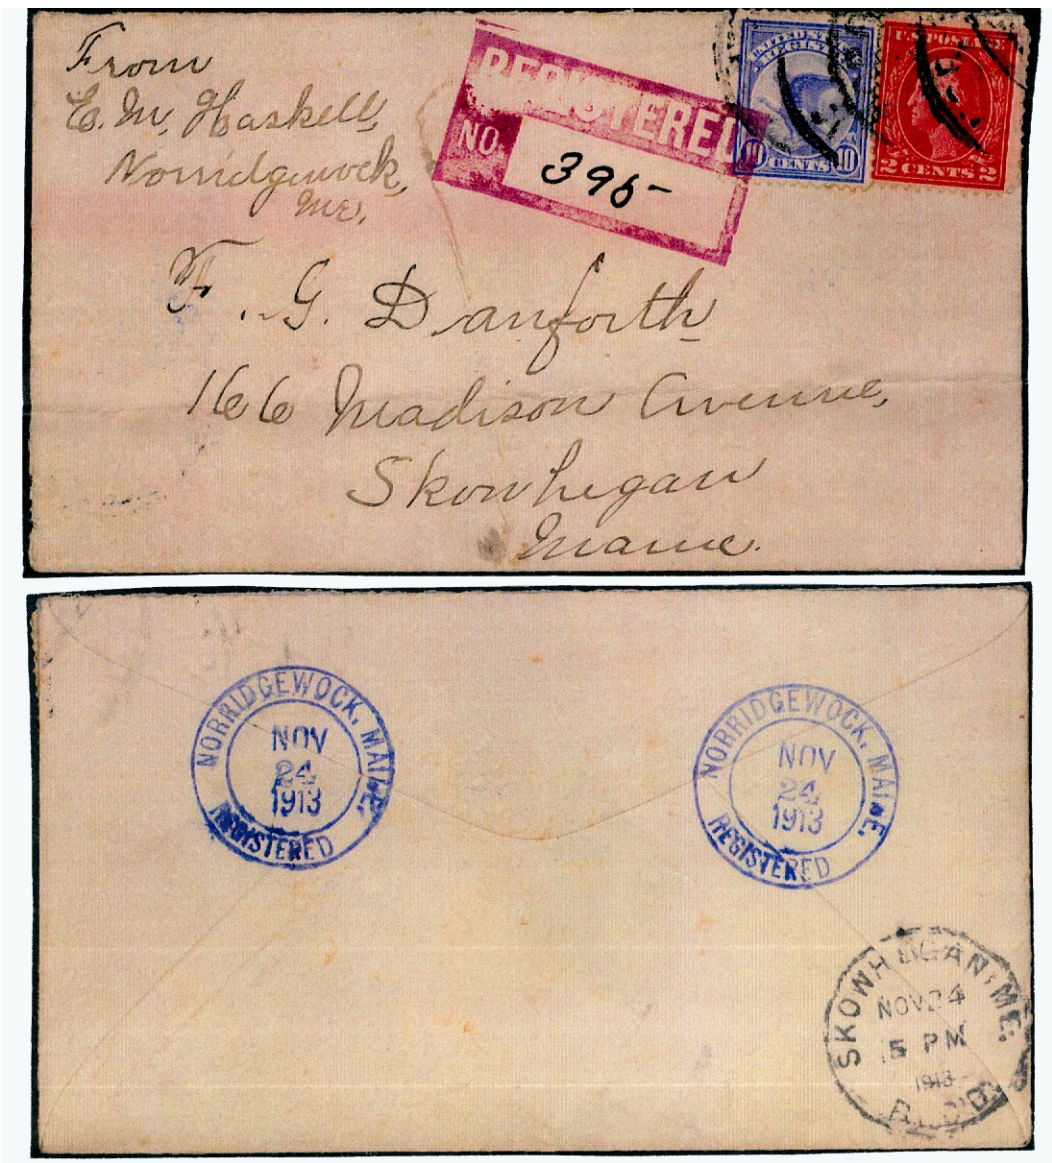 From
E. M. Haskell,
Norridgewock,
Me.
REGISTERED
NO. 395-
UNITED STATES
REGISTRY
10 CENTS 10
U.S. POSTAGE
2 CENTS 2
F. G. Danforth
166 Madison Avenue,
Skowhegan
Maine.
NORRIDGEWOCK, MAINE.
NOV
24
1913
REGISTERED
NORRIDGEWOCK, MAINE.
NOV
24
1913
REGISTERED
SKOWHEGAN, ME.
NOV 24
5 PM
1913
REC'D